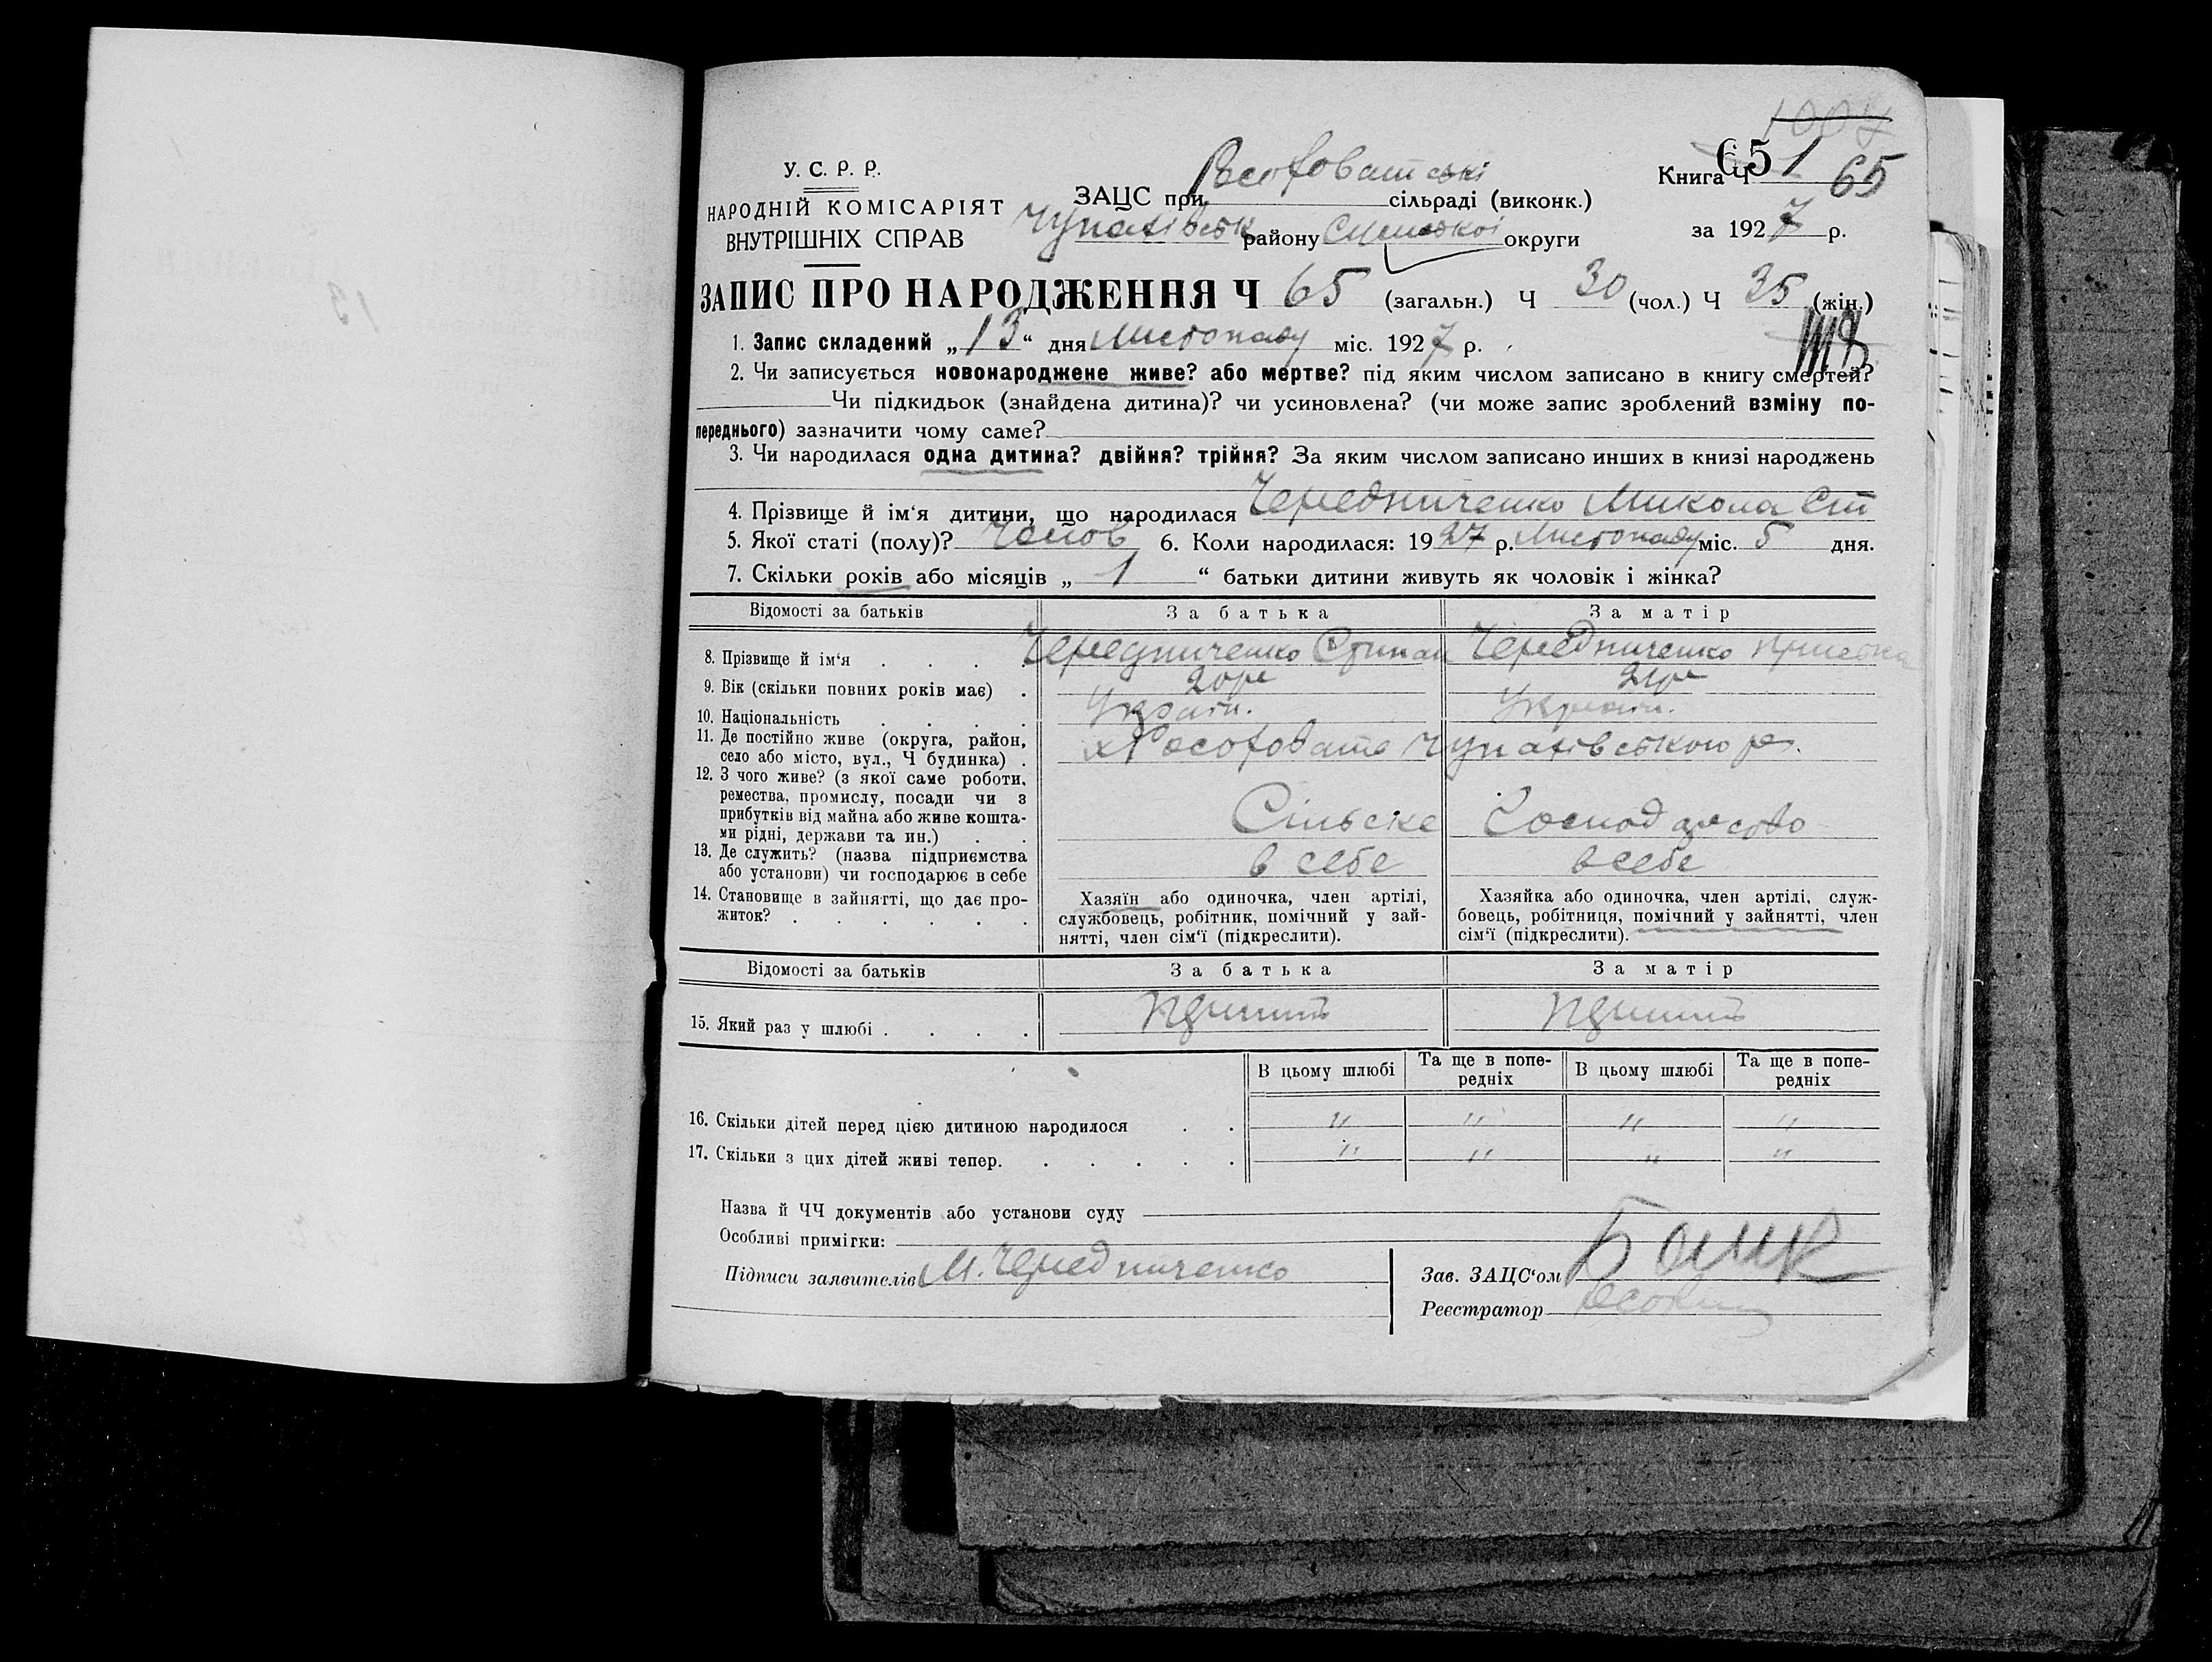 1007
У. С. Р. Р.
НАРОДНІЙ КОМІСАРІЯТ
ВНУТРІШНІХ СПРАВ
ЗАЦС при Росоховатські сільраді (виконк.)
Чупахівськ району Сумської округи
Книга Ч 65 1 65
за 1927 р.
ЗАПИС ПРО НАРОДЖЕННЯ Ч 65 (загальн.) Ч 30 (чол.) Ч 35 (жін.)
1. Запис складений „13“ дня Листопаду міс. 1927 р.
2. Чи записується новонароджене живе? або мертве? під яким числом записано в книгу смертей?
Чи підкидьок (знайдена дитина)? чи усиновлена? (чи може запис зроблений взміну по-
переднього) зазначити чому саме?
3. Чи народилася одна дитина? двійня? трійня? За яким числом записано инших в книзі народжень
4. Прізвище й ім'я дитини, що народилася Чередниченко Микола Ст
5. Якої статі (полу)? Чолов 6. Коли народилася: 1927 р. Листопаду міс. 5 дня.
7. Скільки років або місяців „ 1 “ батьки дитини живуть як чоловік і жінка?
Відомості за батьків За батька За матір
8. Прізвище й ім'я . . . . Чередниченко Стипан Чередниченко
9. Вік (скільки повних років має) . 20 рс 21 рс
10. Національність . . . . Україн. Україн.
11. Де постійно живе (округа, район,
село або місто, вул., Ч будинка) . х Росоховате Чупахівського ра.
12. З чого живе? (з якої саме роботи,
ремества, промислу, посади чи з
прибутків від майна або живе кошта-
ми рідні, держави та ин.) . . Сільске Господарство
13. Де служить? (назва підприємства
або установи) чи господарює в себе в себе в себе
14. Становище в зайнятті, що дає про-
житок? . . . . . .
Хазяїн або одиночка, член артілі,
службовець, робітник, помічний у зай-
нятті, член сім'ї (підкреслити).
Хазяйка або одиночка, член артілі, служ-
бовець, робітниця, помічний у зайнятті, член
сім'ї (підкреслити).
Відомості за батьків За батька За матір
15. Який раз у шлюбі . . . .
В цьому шлюбі Та ще в попе-
редніх В цьому шлюбі Та ще в попе-
редніх
16. Скільки дітей перед цією дитиною народилося . . " " " "
17. Скільки з цих дітей живі тепер. . . . . . " " " "
Назва й ЧЧ документів або установи суду
Особливі примітки:
Підписи заявителів М. Чередниченко
Зав. ЗАЦС'ом
Реєстратор